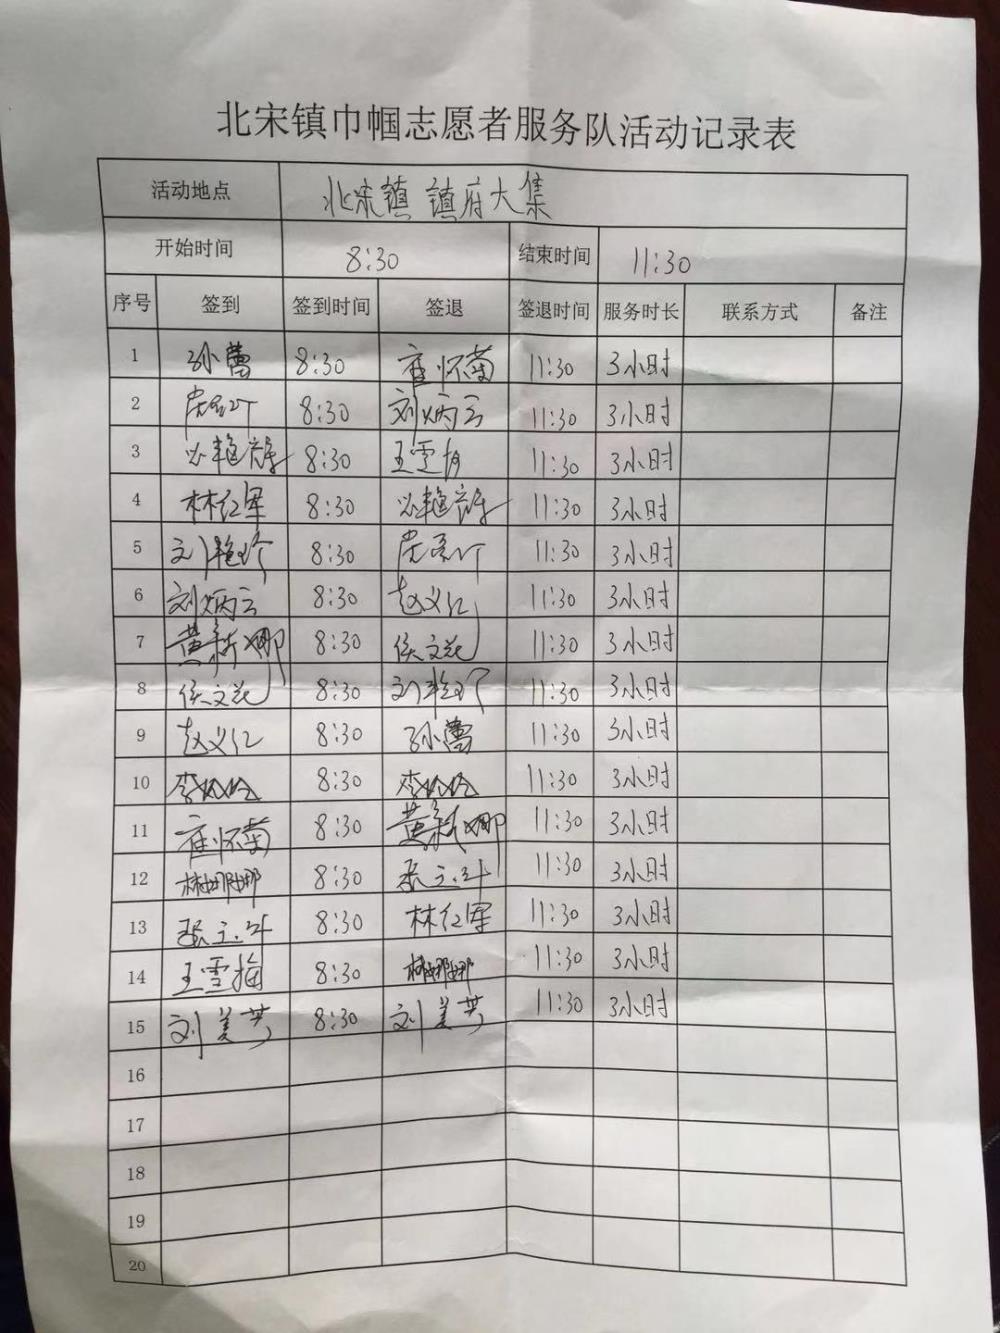 北宋镇巾帼志愿者服务队活动记录表
活动地点 北宋镇 镇府大集
开始时间 8:30 结束时间 11:30
序号 签到 签到时间 签退 签退时间 服务时长 联系方式 备注
1 孙蕾 8:30 崔怀菊 11:30 3小时
2 8:30 刘炳云 11:30 3小时
3 8:30 王雪梅 11:30 3小时
4 林红军 8:30 11:30 3小时
5 刘艳珍 8:30 11:30 3小时
6 刘炳云 8:30 赵义红 11:30 3小时
7 黄新娜 8:30 侯文花 11:30 3小时
8 侯文花 8:30 刘艳珍 11:30 3小时
9 赵义红 8:30 孙蕾 11:30 3小时
10 李玲玲 8:30 李玲玲 11:30 3小时
11 崔怀菊 8:30 黄新娜 11:30 3小时
12 林娜娜 8:30 11:30 3小时
13 8:30 林红军 11:30 3小时
14 王雪梅 8:30 林娜娜 11:30 3小时
15 刘美芳 8:30 刘美芳 11:30 3小时
16
17
18
19
20